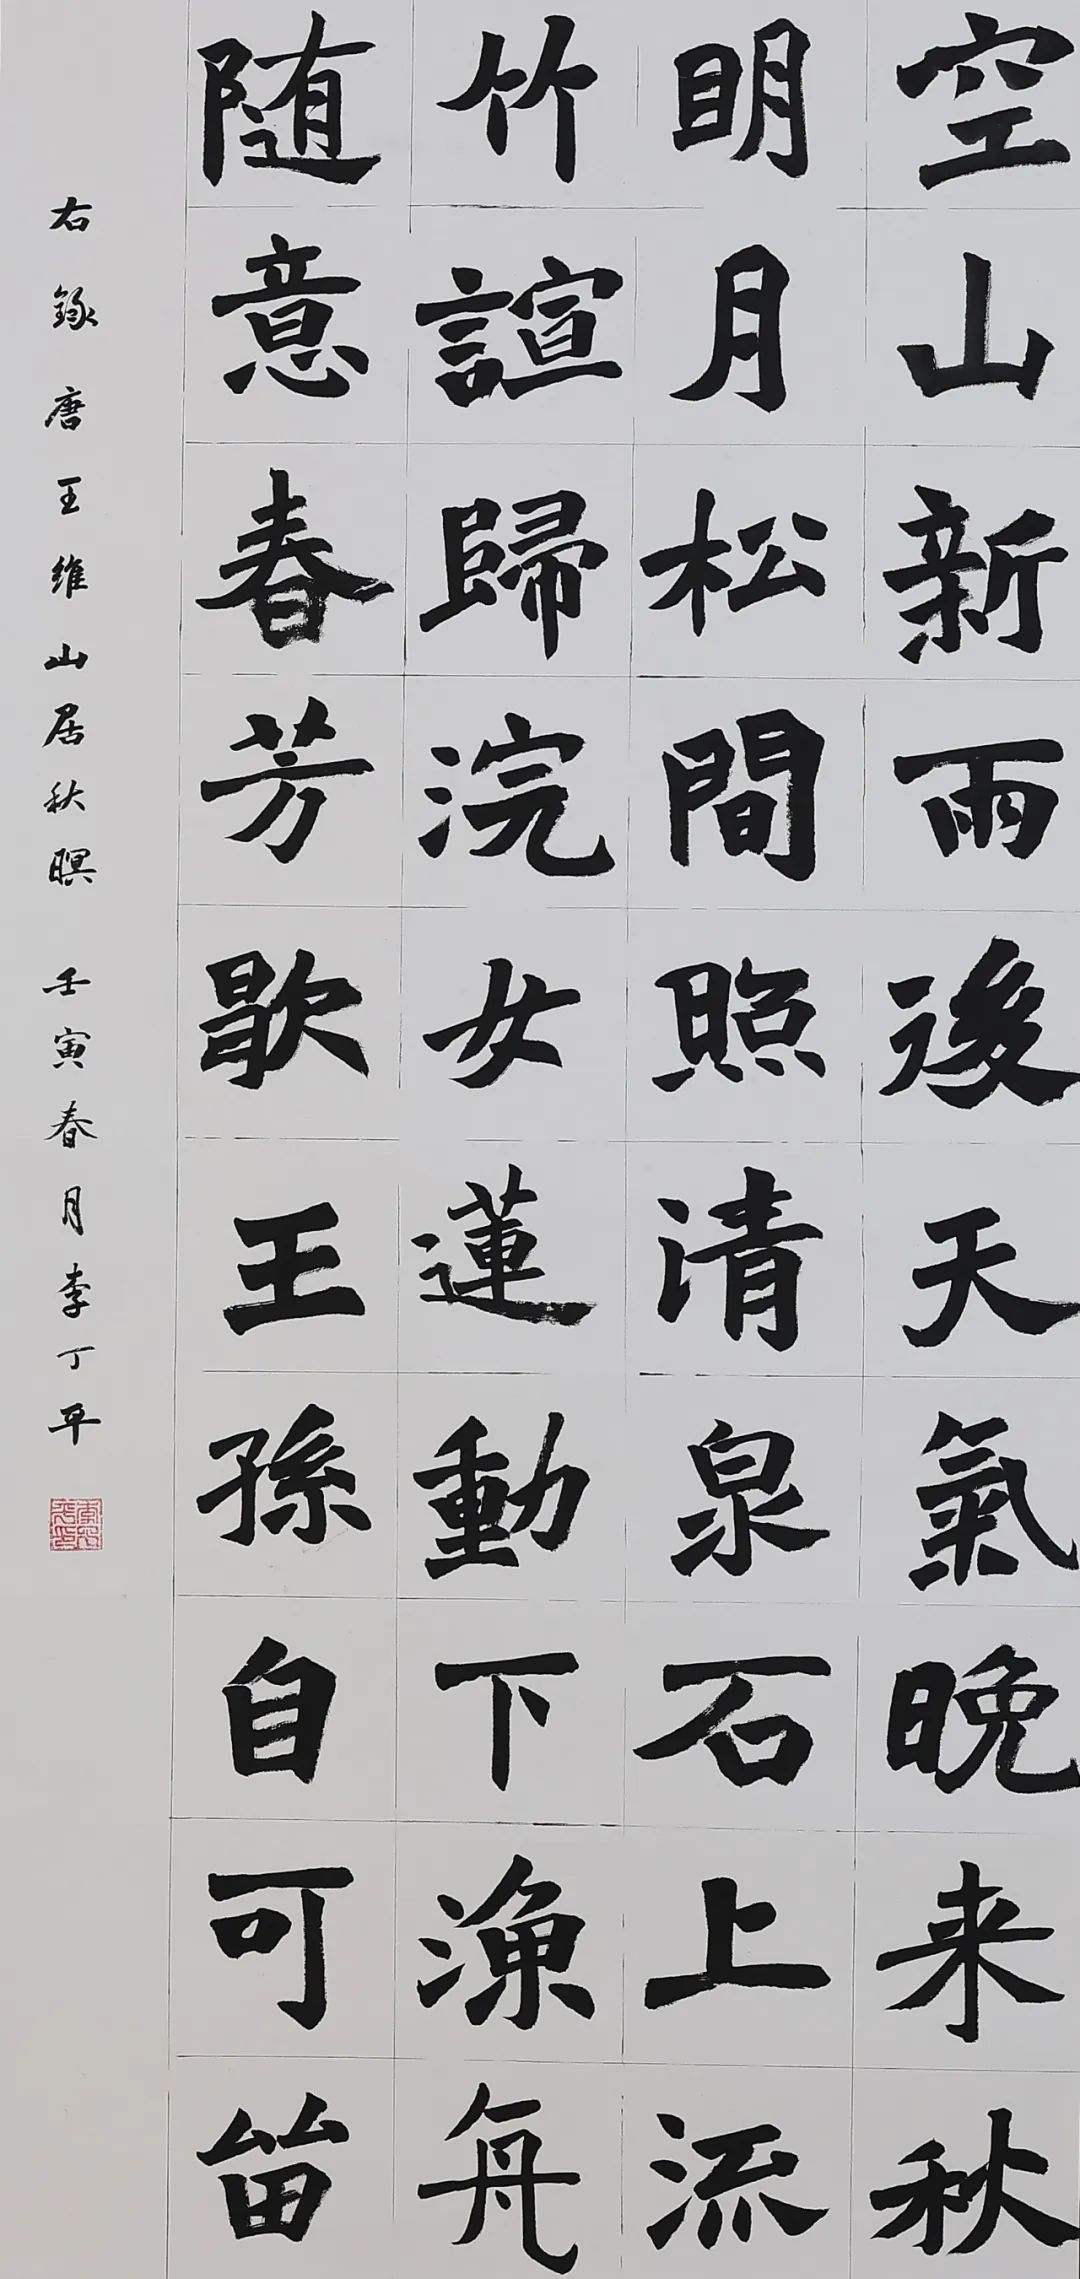 空山新雨後天氣晚来秋
眀月松間照清泉石上流
竹諠歸浣女蓮動下漁舟
随意春芳歇王孫自可留
右錄唐王維山居秋暝 壬寅春月李丁平